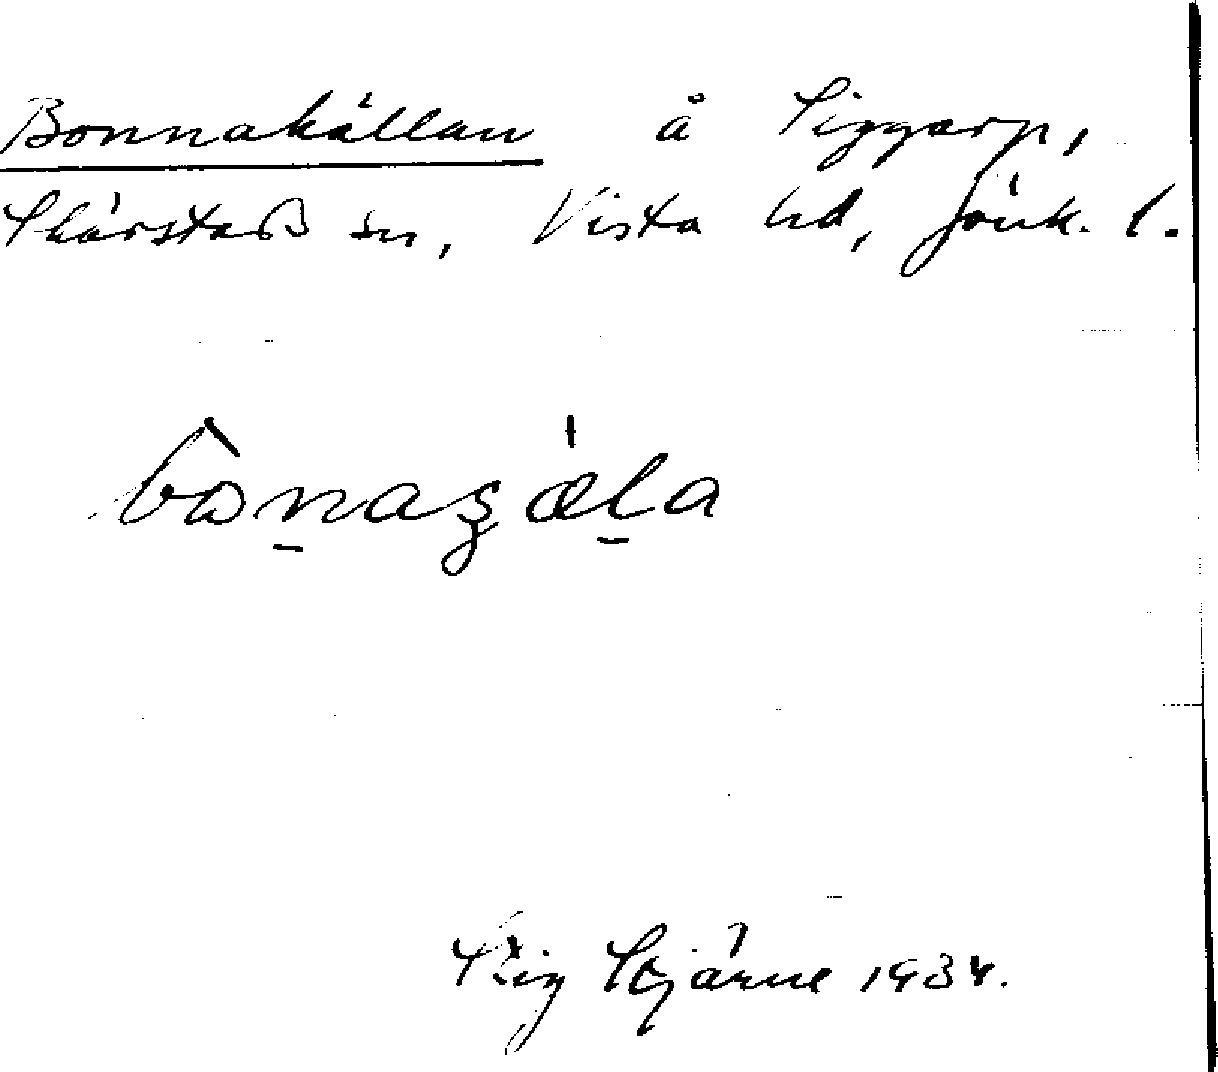 Bonnakällan å Siggarp,
Skärstads sn, Vista hd, Jönk. l.
bònaʒæ̀la
Stig Stjärne 1934.